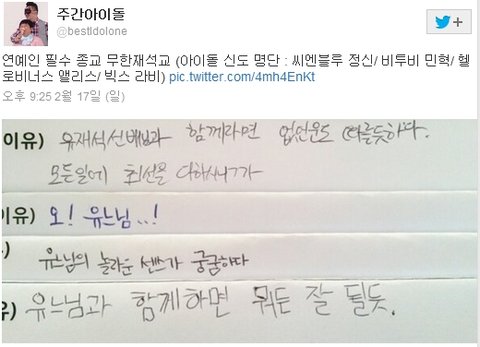 주간아이돌
@bestidolone
연예인 필수 종교 무한재석교 (아이돌 신도 명단 : 씨엔블루 정신/ 비투비 민혁/ 헬
로비너스 앨리스/ 빅스 라비) pic.twitter.com/4mh4EnKt
오후 9:25 2월 17일 (일)
이유) 유재석선배님과 함께라면 없던운도 따를듯하다.
모든일에 최선을 다하시니까
이유) 오! 유느님..!
) 유느님의 놀라운 센스가 궁금하다
유) 유느님과 함께하면 뭐든 잘 될듯.